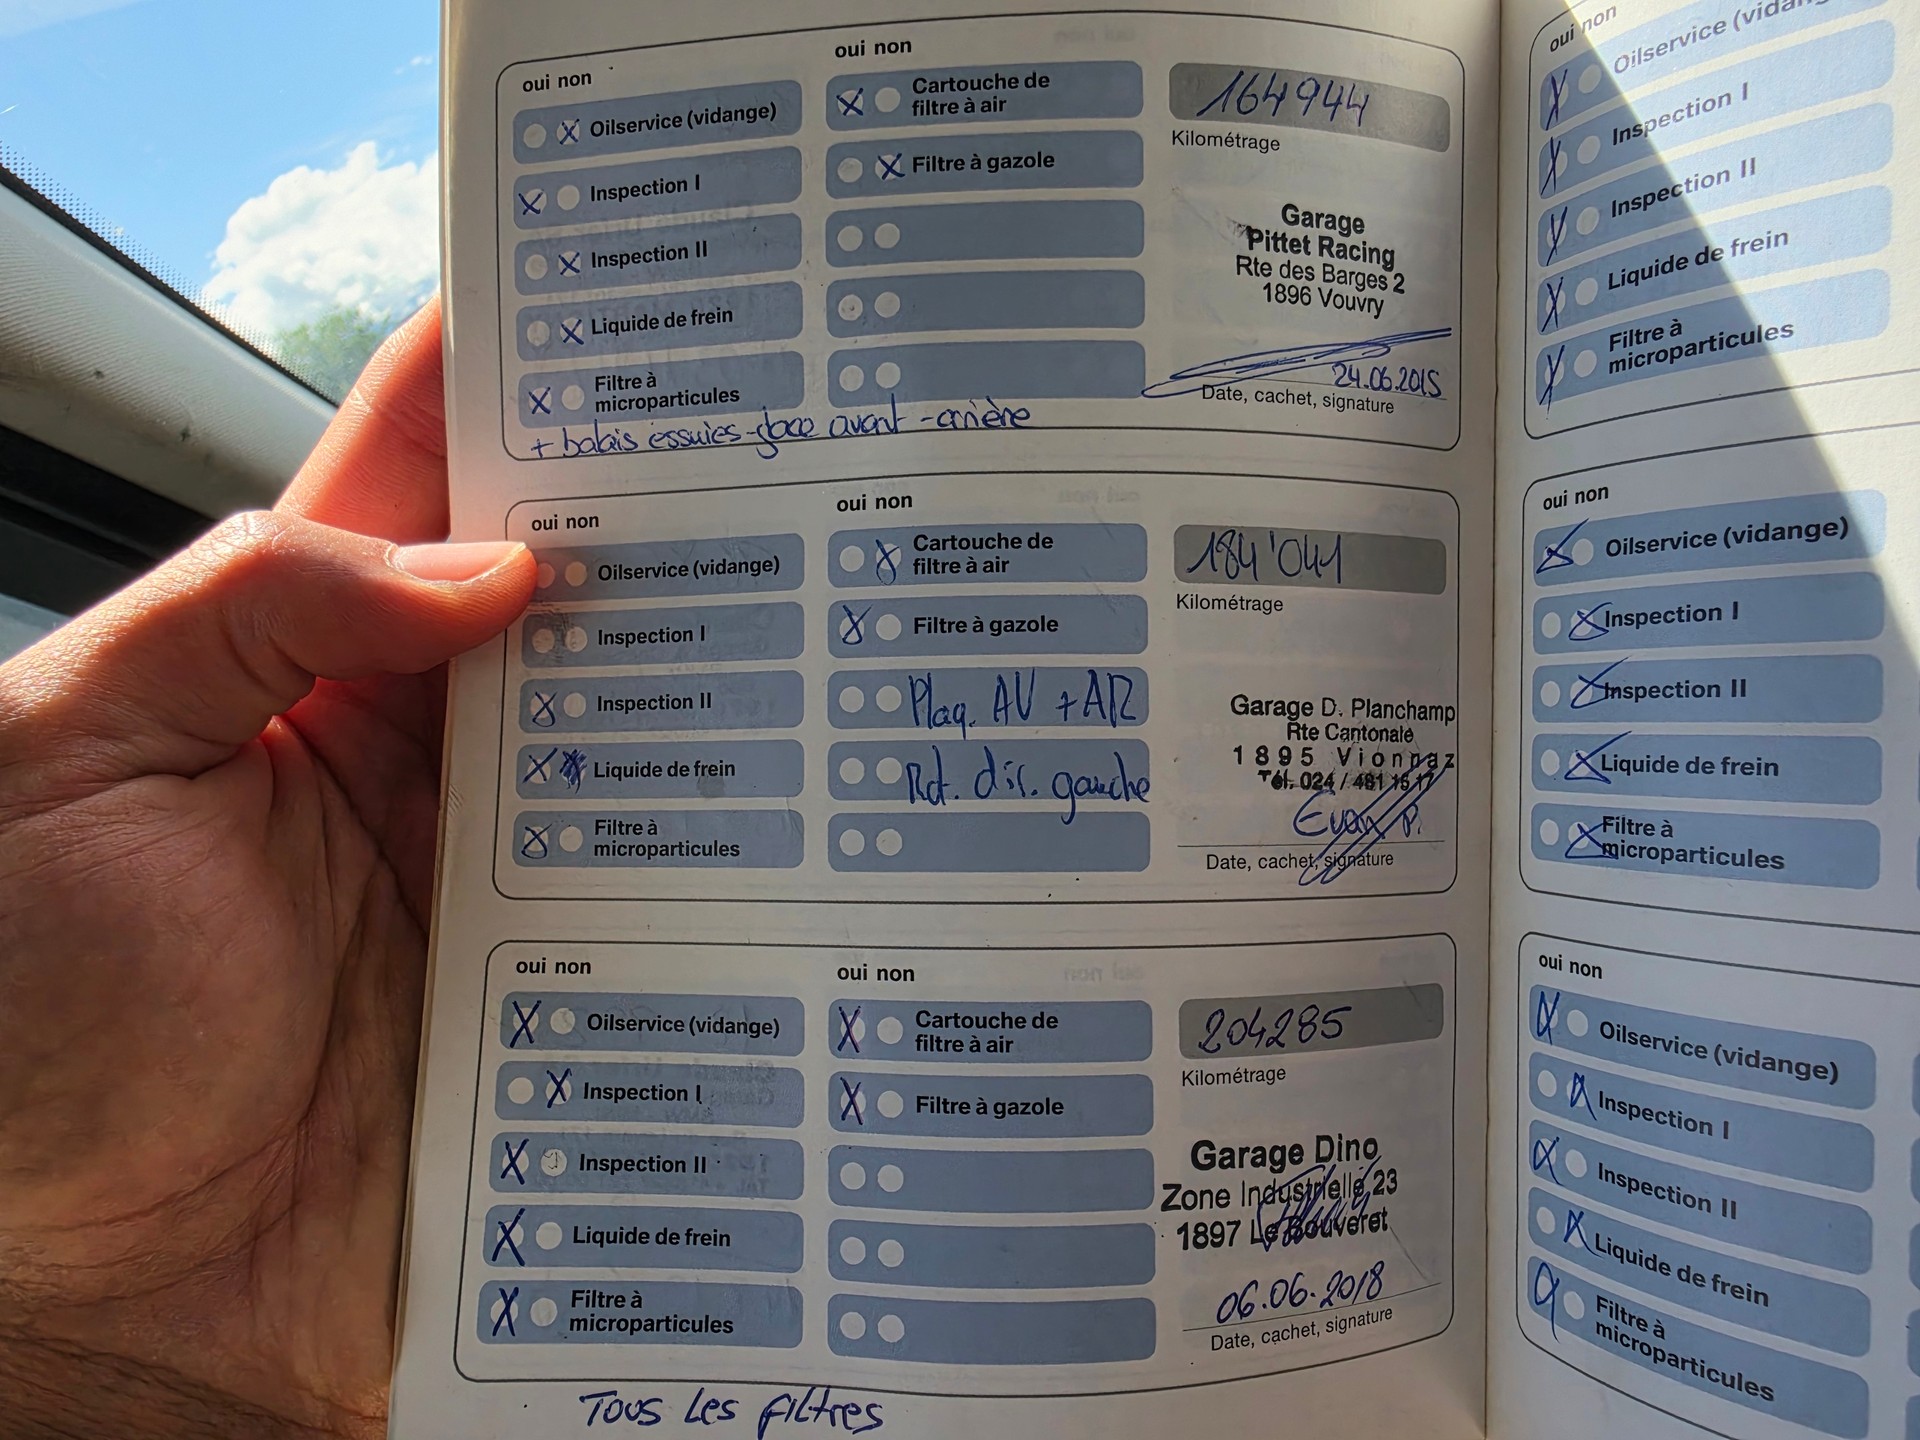 oui non
oui non
Oilservice (vidange)
Inspection I
Inspection II
Liquide de frein
Filtre à
microparticules
Cartouche de
filtre à air
Filtre à gazole
164944
Kilométrage
Garage
Pittet Racing
Rte des Barges 2
1896 Vouvry
24.06.2015
Date, cachet, signature
+ balais essuies-glace avant-arrière
oui non
oui non
Oilservice (vidange)
Inspection I
Inspection II
Liquide de frein
Filtre à
microparticules
Cartouche de
filtre à air
Filtre à gazole
Plaq. AV + AR
Rot. dir. gauche
184'041
Kilométrage
Garage D. Planchamp
Rte Cantonale
1895 Vionnaz
Tél. 024 / 481 15 17
Evan P.
Date, cachet, signature
oui non
oui non
Oilservice (vidange)
Inspection I
Inspection II
Liquide de frein
Filtre à
microparticules
Cartouche de
filtre à air
Filtre à gazole
204285
Kilométrage
Garage Dino
Zone Industrielle 23
1897 Le Bouveret
06.06.2018
Date, cachet, signature
Tous les filtres
oui non
Oilservice (vidan
Inspection I
Inspection II
Liquide de frein
Filtre à
microparticules
oui non
Oilservice (vidange)
Inspection I
Inspection II
Liquide de frein
Filtre à
microparticules
oui non
Oilservice (vidange)
Inspection I
Inspection II
Liquide de frein
Filtre à
microparticules